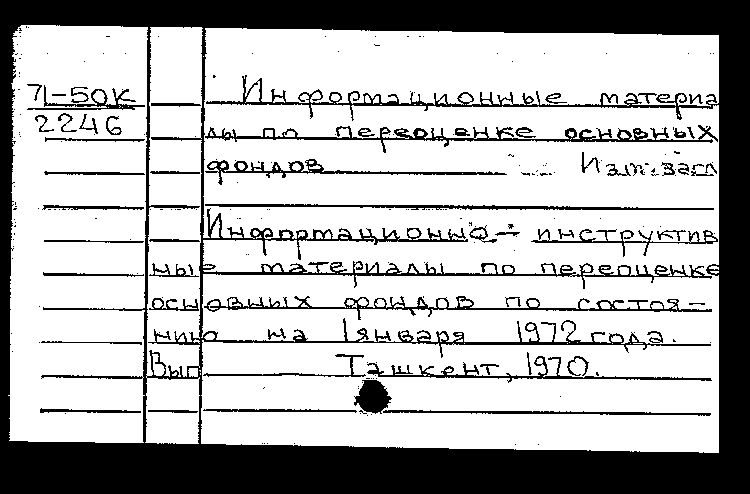 71-50К
2246
Информационные материа
лы по переоценке основных
фондов Изм.загл
Информационно - инструктив
ные материалы по переоценке
основных фондов по состоя-
нию на 1 января 1972 года.
Вып Ташкент, 1970.